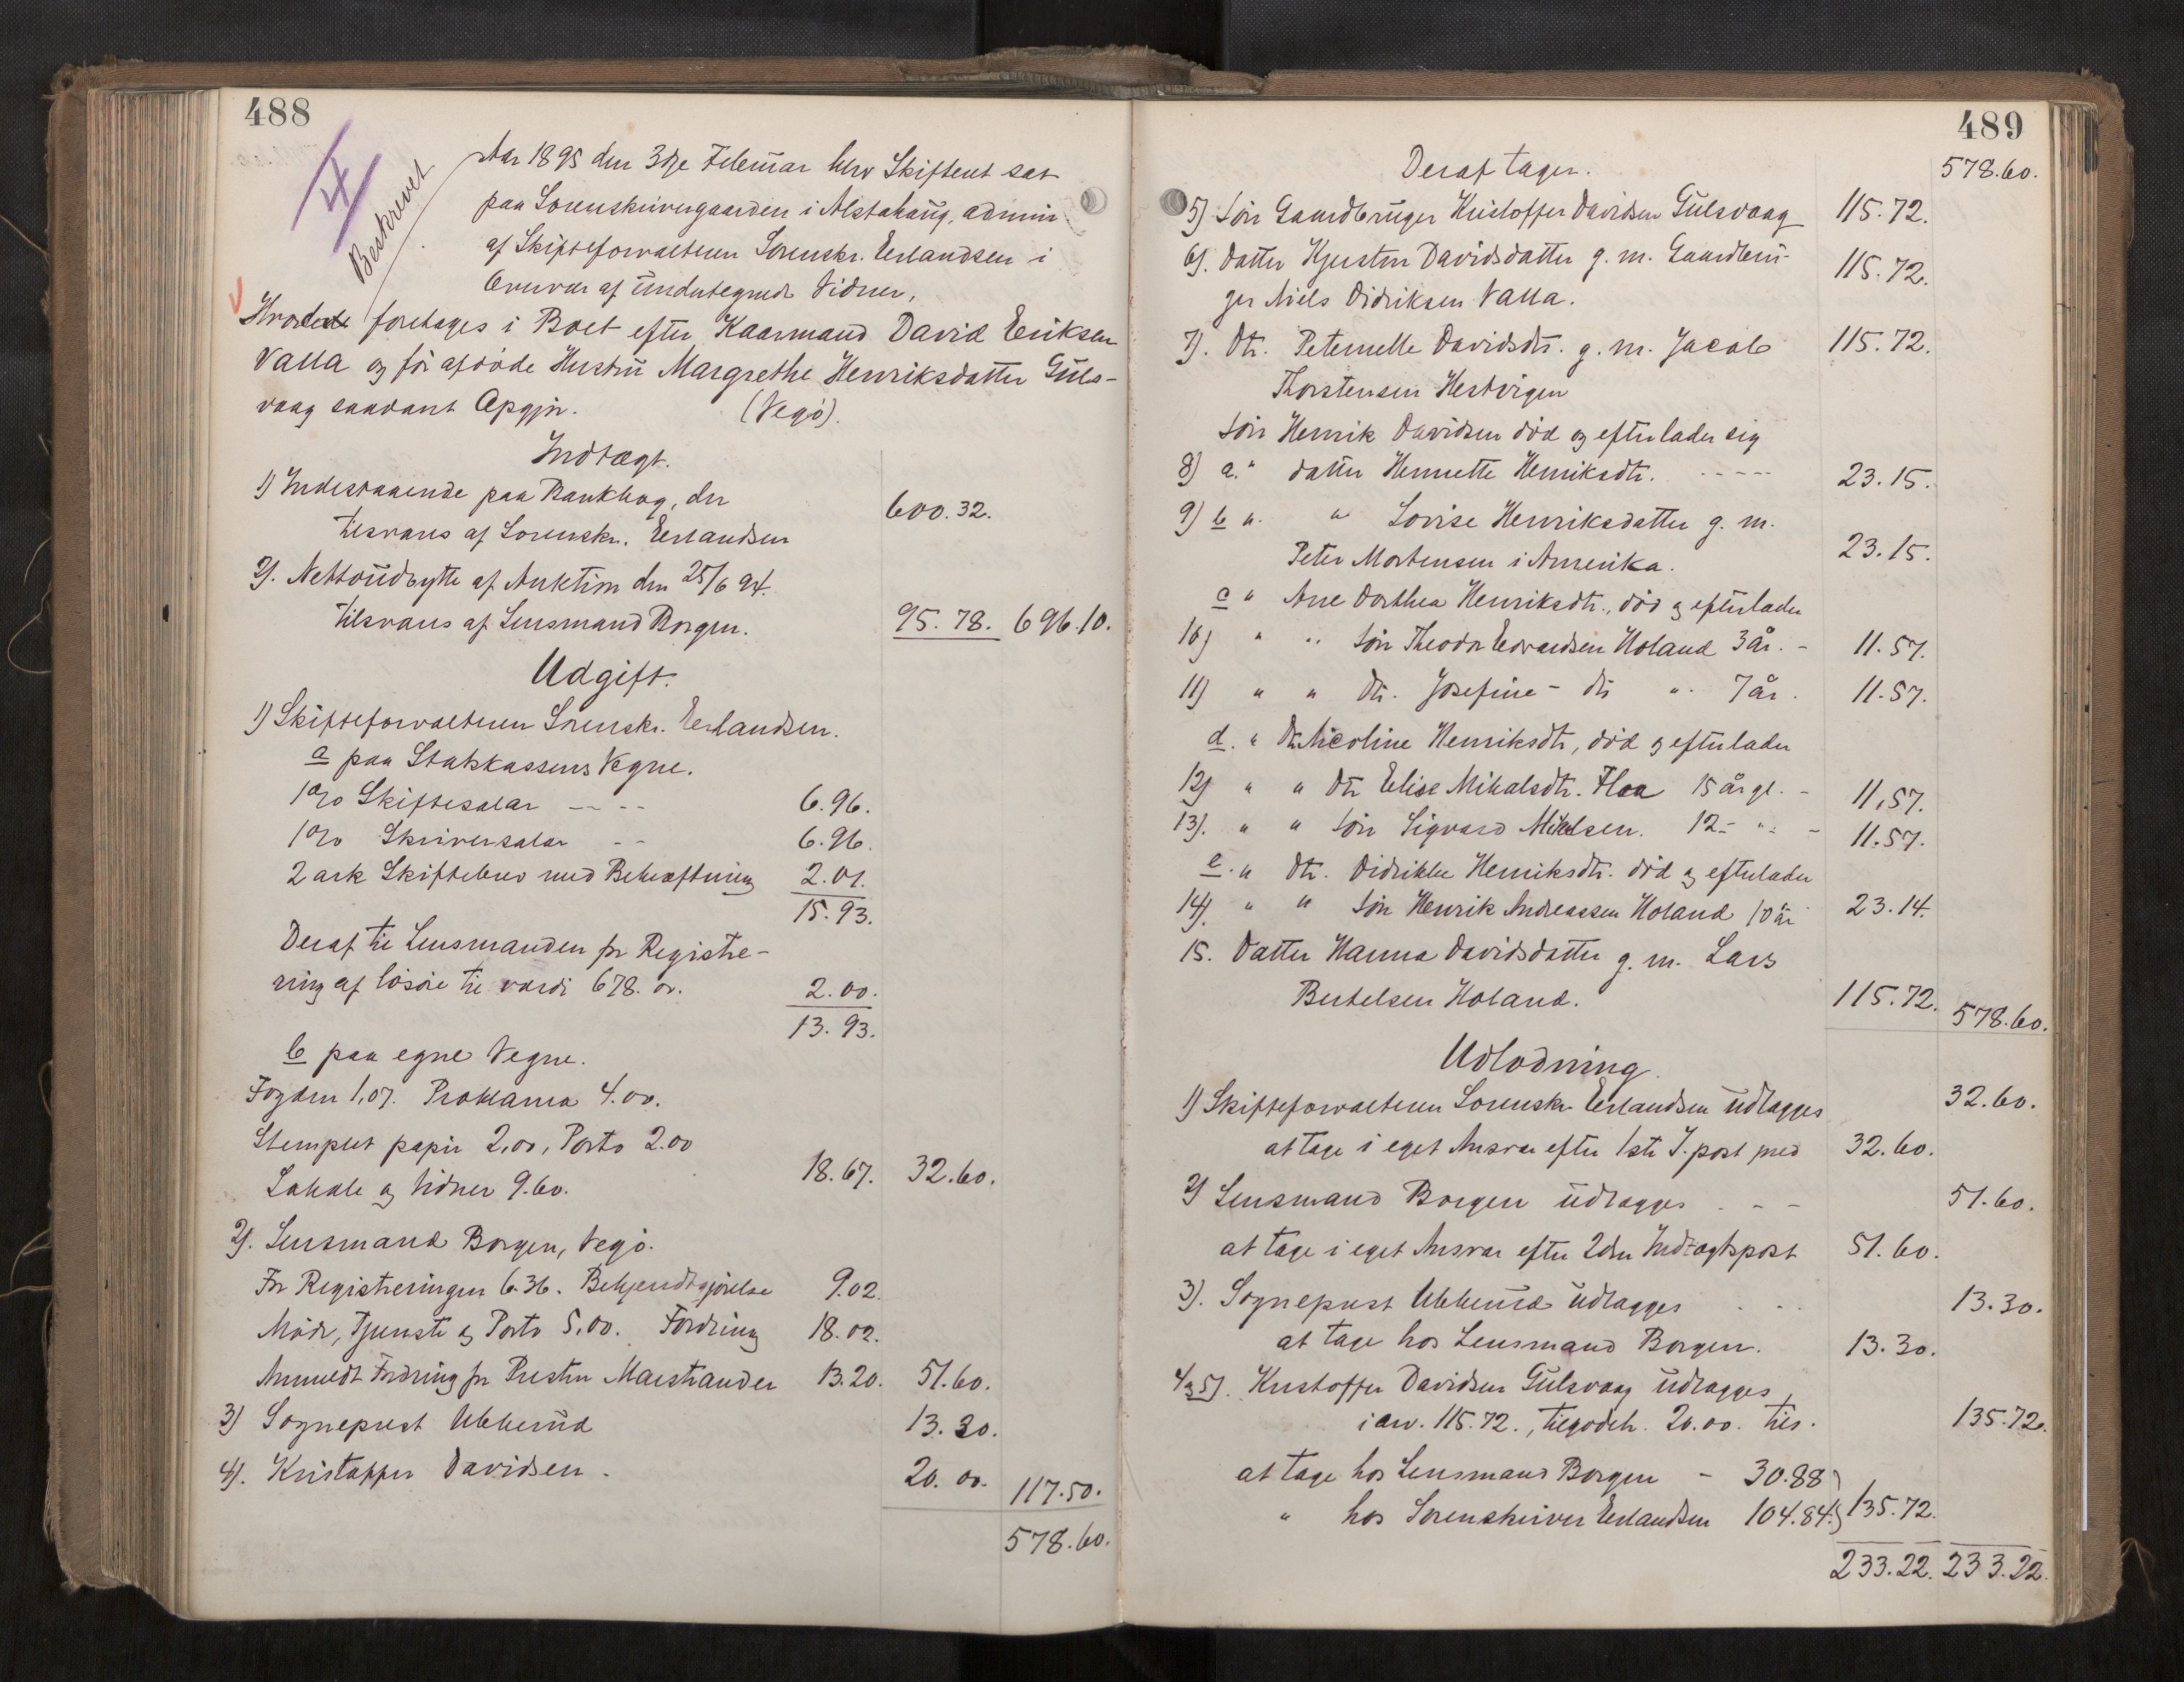 488
4
Beskrevet
Aar 1895 den 3dje Februar blev Skifteret sat
paa Sorenskrivergaarden i Alstahaug, admin
af Skifteforvalteren Sorenskr. Erlandsen i
Overvær af undertegnede Vidner,
Hvorda foretages i Boet efter Kaarmand David Eriksen
Valla og før afdøde Hustru Margrethe Henriksdatter Guls-
vaag saadant Opgjør. (Vegø).
Indtægt.
1) Indestaaende paa Bankbog, der
tilsvares af Sorenskr. Erlandsen 600.32.
2). Nettoudbytte af Auktion den 25/6 94.
tilsvares af Lensmand Borgen. 95.78. 696.10.
Udgift.
1) Skifteforvalteren Sorenskr. Erlandsen.
a paa Statskassens Vegne.
1% Skiftesalær - - - 6.96.
1% Skriversalær - - 6.96.
2 ark Skiftebrev med Bekræftning 2.01.
15.93.
Deraf til Lensmanden for Registre-
ring af løsøre til værdi 678. or. 2.00.
13.93.
b paa egne Vegne.
Fogden 1,07. Proklama 4.00.
Stemplet papir 2,00, Porto 2.00
Lokale og Vidner 9.60. 18.67. 32.60.
2). Lensmand Borgen, Vegø.
For Registreringen 6.36. Bekjendtgjørelse 9.02.
Møde, Tjeneste og Porto 5,00. Fordring 18.02.
Anmeldt Fordring fra Presten Maistrander 13.20. 51.60.
3) Sogneprest Ubberud 13.30.
4). Kristoffer Davidsen. 20.00. 117.50.
578.60.
489
Deraf tager. 578.60.
5) Søn Gaardbruger Kristoffer Davidsen Gulsvaag 115.72.
6). Datter Kjersten Davidsdatter g. m. Gaardbru- 115.72.
ger Niels Didriksen Valla.
7). Dtr. Peternelle Davidsdtr. g. m. Jacob 115.72.
Thorstensen Hestvigen
Søn Henrik Davidsen død og efterlader sig
8) a. " datter Hennette Henriksdtr. - - - - - 23.15.
9) b ". " Lovise Henriksdatter g. m.
Peter Mortensen i Amerika. 23.15.
c " Ane Dorthea Henriksdtr., død og efterlader
10) " " Søn Theodor Edvardsen Holand 3 år. - 11.57.
11) " " Dtr. Josefine - dtr " 7 år. 11.57.
d. " Dtr. Nicoline Henriksdtr, død og efterlader
12) " " Dtr Elise Mikalsdtr. Flaa 15 år gl. - 11,57.
13). " " Søn Sigvard Mikalsen. 12 - " - 11.57.
e. " Dtr. Didrikke Henriksdtr. død og efterlader
14). " " Søn Henrik Andreassen Holand 10 år 23.14.
15. Datter Hanna Davidsdatter g. m. Lars
Bertelsen Holand. 115.72. 578.60.
Udlodning.
1) Skifteforvalteren Sorenskr. Erlandsen udlægges 32.60.
at tage i eget Ansvar efter 1ste I. post med 32.60.
2) Lensmand Borgen udlægges - - - 51.60.
at tage i eget Ansvar efter 2den Indtægtspost 51.60.
3). Sogneprest Ubberud udlægges - - - 13.30.
at tage hos Lensmand Borgen. 13.30.
4 og 5). Kristoffer Davidsen Gulsvaag udlægges,
i arv. 115.72., tilgodeh. 20.00. tils. 135.72.
at tage hos Lensmand Borgen - 30.88
" hos Sorenskriver Erlandsen 104.84. 135.72.
233.22. 233.22.